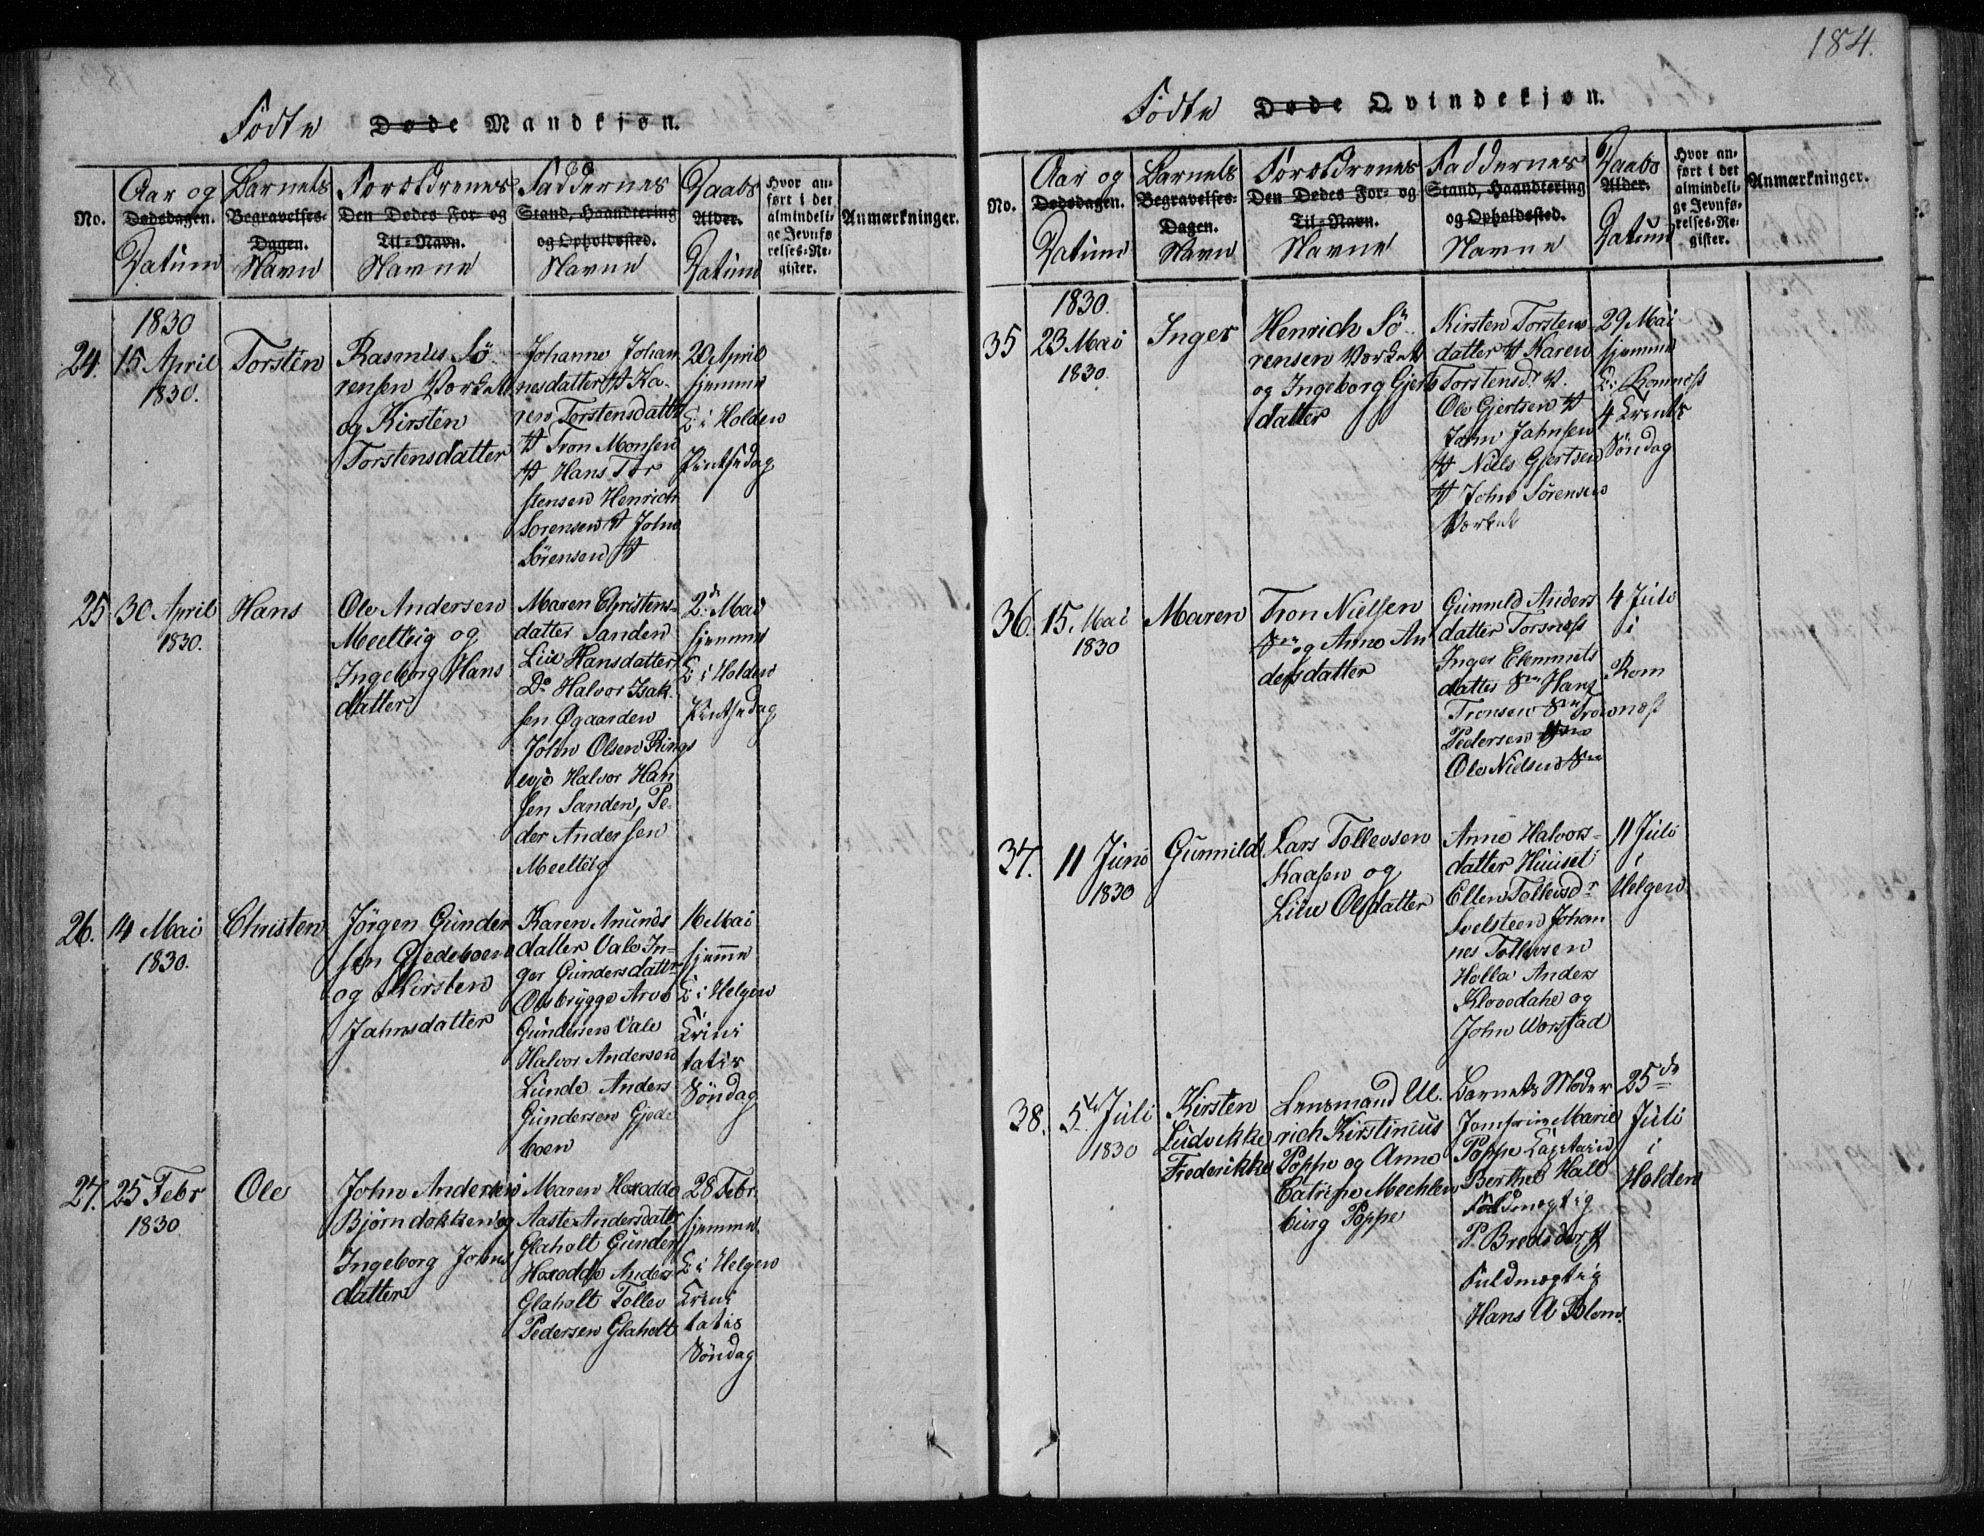 184.
Födte Døde Mandkjøn.
No.
Aar og
Dødsdagen.
Datum
Barnets
Begravelses-
Dagen.
Navn
Forældrenes
Den Dødes For- og
Til-Navn.
Navne
Faddernes
Stand, Haandtering
og Opholdssted.
Navne
Daabs
Alder.
Datum
Hvor an-
ført i det
almindeli-
ge Jevnfø-
relses-Re-
gister.
Anmærkninger.
1830
24. 15 April
1830.
Torsten
Rasmus Sö-
rensen Værket
og Kirsten
Torstensdatter
Johanne Johan
nesdatter Ka-
ren Torstensdatter
Tron Monsen
Hans Tor
stensen Henrich
Sorensen John
Sörensen
20 April
hjemme
i Holden
Pintsedag
25 30 April
1830.
Hans
Ole Andersen
Meelteig og
Ingeborg Hans
datter
Maren Christens-
datter Sanden
Live Hansdatter
Do Halvor Isak-
sen Øgaarden
John Olsen Rings
evjo Halvor Han
sen Sanden, Pe-
der Andersen
Meelteig
2 Mai
hjemme
i Holden
Pintsedag
26. 14 Mai
1830.
Christen
Jörgen Gunder
sen Gjedeboen
og Kirsten
Jahnsdatter
Karen Anunds
datter Vale In-
ger Gundersdatter
Olsbrygge Arve
Gundersen Vale
Halvor Andersen
Lunde Anders
Gundersen Gjede
boen
16 Mai
hjemme
i Helgen
Trini
tatis
Söndag
27. 25 Febr
1830.
Ole
John Andersen
Björndokken og
Ingeborg Johns
datter
Maren Hoxodde
Aaste Andersdatter
Glaholt Gunder
Hoxodde Anders
Glaholt Tollev
Pedersen Glaholt
28 Febr.
hjemme
i Helgen
Trini
tatis
Söndag
Födte Døde Qvindekjøn.
No.
Aar og
Dødsdagen.
Datum
Barnets
Begravelses-
Dagen.
Navn
Forældrenes
Den Dødes For- og
Til-Navn.
Navne
Faddernes
Stand, Haandtering
og Opholdssted.
Navne
Daabs
Alder.
Datum
Hvor an-
ført i det
almindeli-
ge Jevnfø-
relses-Re-
gister.
Anmærkninger.
1830.
35 23 Mai
1830.
Inger
Henrich Sö-
rensen Værket
og Ingeborg Gjerts
datter
Kirsten Torstens
datter Karen
Torstensdr
Ole Gjertsen
Jahn Jahnsen
Niels Gjertsen
John Sörensen
Værket
29 Mai
hjemme
Romnæs
4 Trinit
Söndag
36. 15. Mai
1830
Maren
Tron Nielsen
og Anne An
dersdatter
Gunneld Anders
datter Torsnæs
Inger Clemmets
datter Hans
Tronsen Tron
Pedersen
Ole Nielsen
4 Juli
i
Rom
næs
37. 11 Juni
1830
Gunnild
Lars Tollevsen
Kaasen og
Live Olsdatter
Anne Halvors-
datter Huuset
Ellen Tollevsdr
Svelsteen Johan
nes Tollevsen
Holla Anders
Klovedahl og
John Vorstad
11 Juli
i
Helgen
38. 5 Juli
1830
Kirsten
Ludvikke
Frederikke
Lensmand Ul-
rich Kirstinius
Poppe og Anne
Catrine Mechlen
burg Poppe
Barnets Moder
Jomfrue Marie
Poppe Capitain
Berthel Hall
Fuldmægtig
P. Bredsdorff
Fuldmægtig
Hans A Blom.
25de
Juli
i
Holden